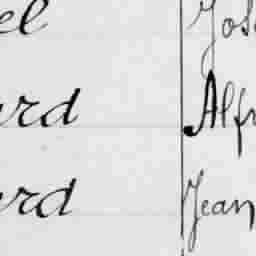 el Jos
ard Alfr
ard Jean